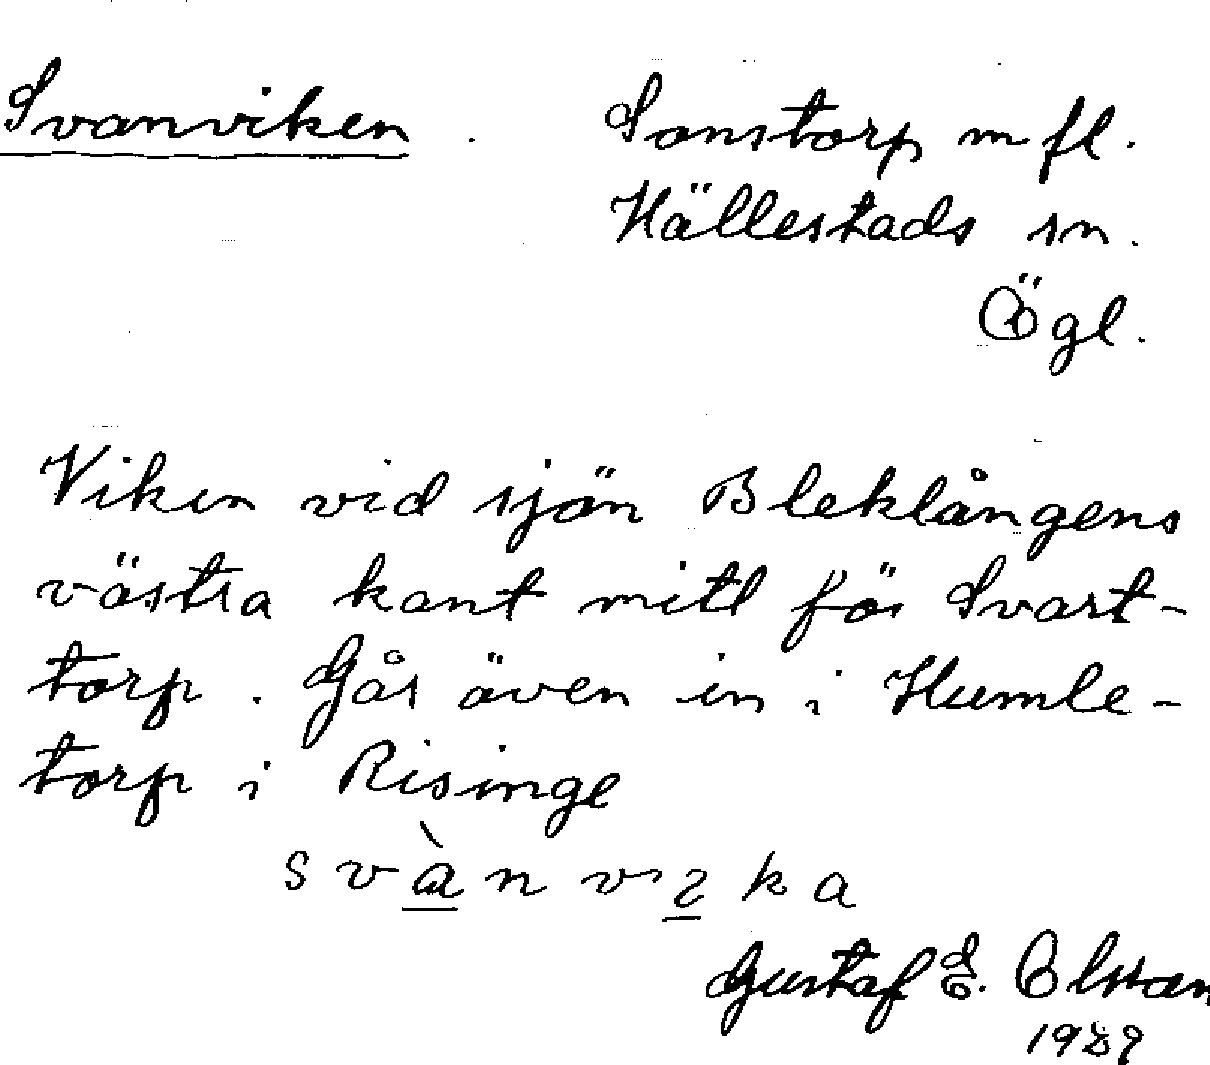 Svanviken . Sonstorp m fl.
Hällestads sn.
Ögl.
Viken vid sjön Bleklångens
västra kant mitt för Svart-
torp. Går även in i Humle-
torp i Risinge
svànvıka
Gustaf E. Olsson
1929